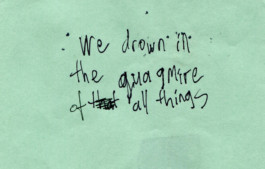 We drown in
the quagmire
of all things